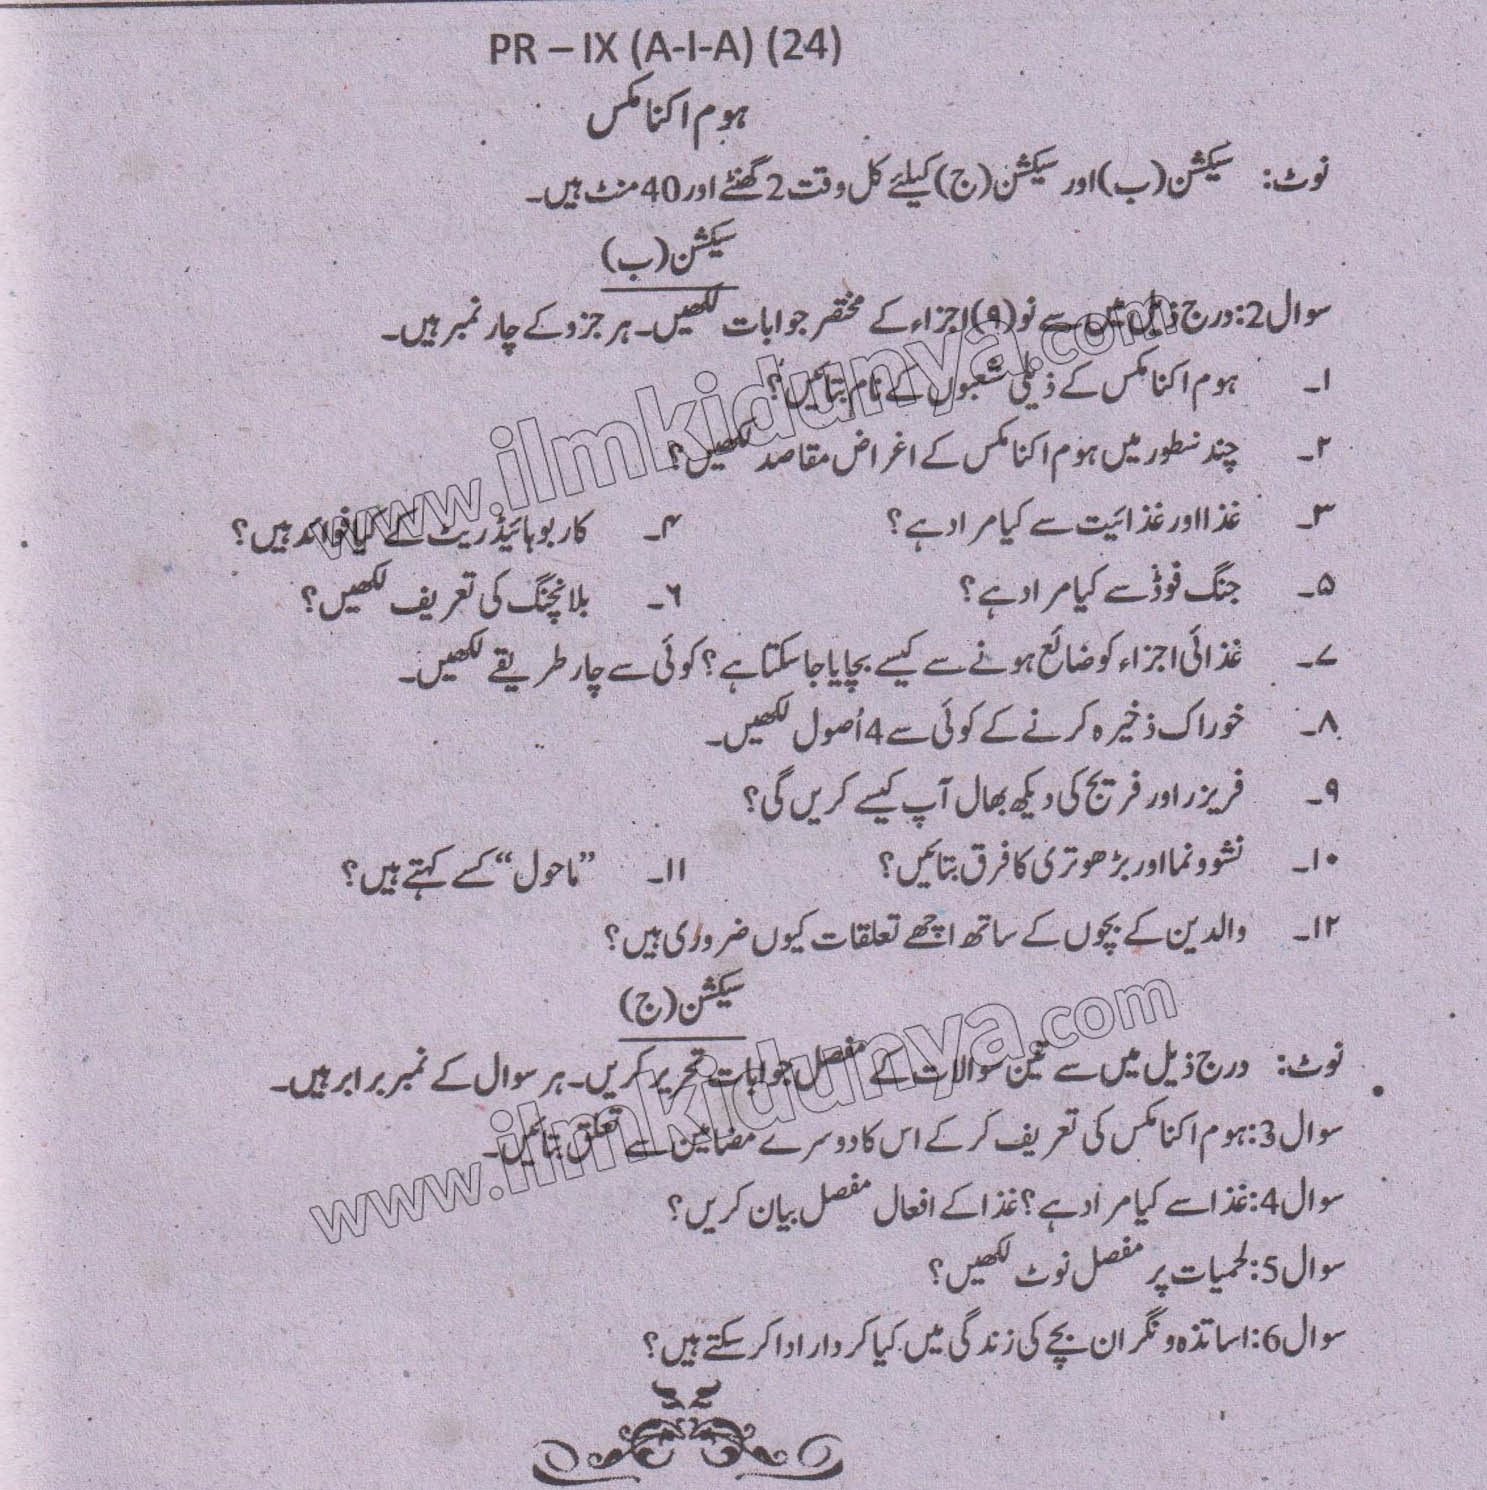 PR – IX (A-I-A) (24)
ہوم اکنامکس
نوٹ: سیکشن (ب) اور سیکشن (ج) کیلئے کل وقت 2 گھنٹے اور 40 منٹ ہیں۔
سیکشن (ب)
سوال 2: درج ذیل میں سے نو (۹) اجزاء کے مختصر جوابات لکھیں۔ ہر جزو کے چار نمبر ہیں۔
۱۔ ہوم اکنامکس کے ذیلی شعبوں کے نام بتائیں؟
۲۔ چند سطور میں ہوم اکنامکس کے اغراض مقاصد لکھیں؟
۳۔ غذا اور غذائیت سے کیا مراد ہے؟ ۴۔ کاربوہائیڈریٹ کے کیا فوائد ہیں؟
۵۔ جنگ فوڈ سے کیا مراد ہے؟ ۶۔ بلانچنگ کی تعریف لکھیں؟
۷۔ غذائی اجزاء کو ضائع ہونے سے کیسے بچایا جاسکتا ہے؟ کوئی سے چار طریقے لکھیں۔
۸۔ خوراک ذخیرہ کرنے کے کوئی سے 4 اُصول لکھیں۔
۹۔ فریزر اور فریج کی دیکھ بھال آپ کیسے کریں گی؟
۱۰۔ نشوونما اور بڑھوتری کا فرق بتائیں؟ ۱۱۔ ”ماحول“ کسے کہتے ہیں؟
۱۲۔ والدین کے بچوں کے ساتھ اچھے تعلقات کیوں ضروری ہیں؟
سیکشن (ج)
نوٹ: درج ذیل میں سے تین سوالات کے مفصل جوابات تحریر کریں۔ ہر سوال کے نمبر برابر ہیں۔
سوال 3: ہوم اکنامکس کی تعریف کر کے اس کا دوسرے مضامین سے تعلق بتائیں۔
سوال 4: غذا سے کیا مراد ہے؟ غذا کے افعال مفصل بیان کریں؟
سوال 5: لحمیات پر مفصل نوٹ لکھیں؟
سوال 6: اساتذہ و نگران بچے کی زندگی میں کیا کردار ادا کر سکتے ہیں؟
www.ilmkidunya.com
www.ilmkidunya.com